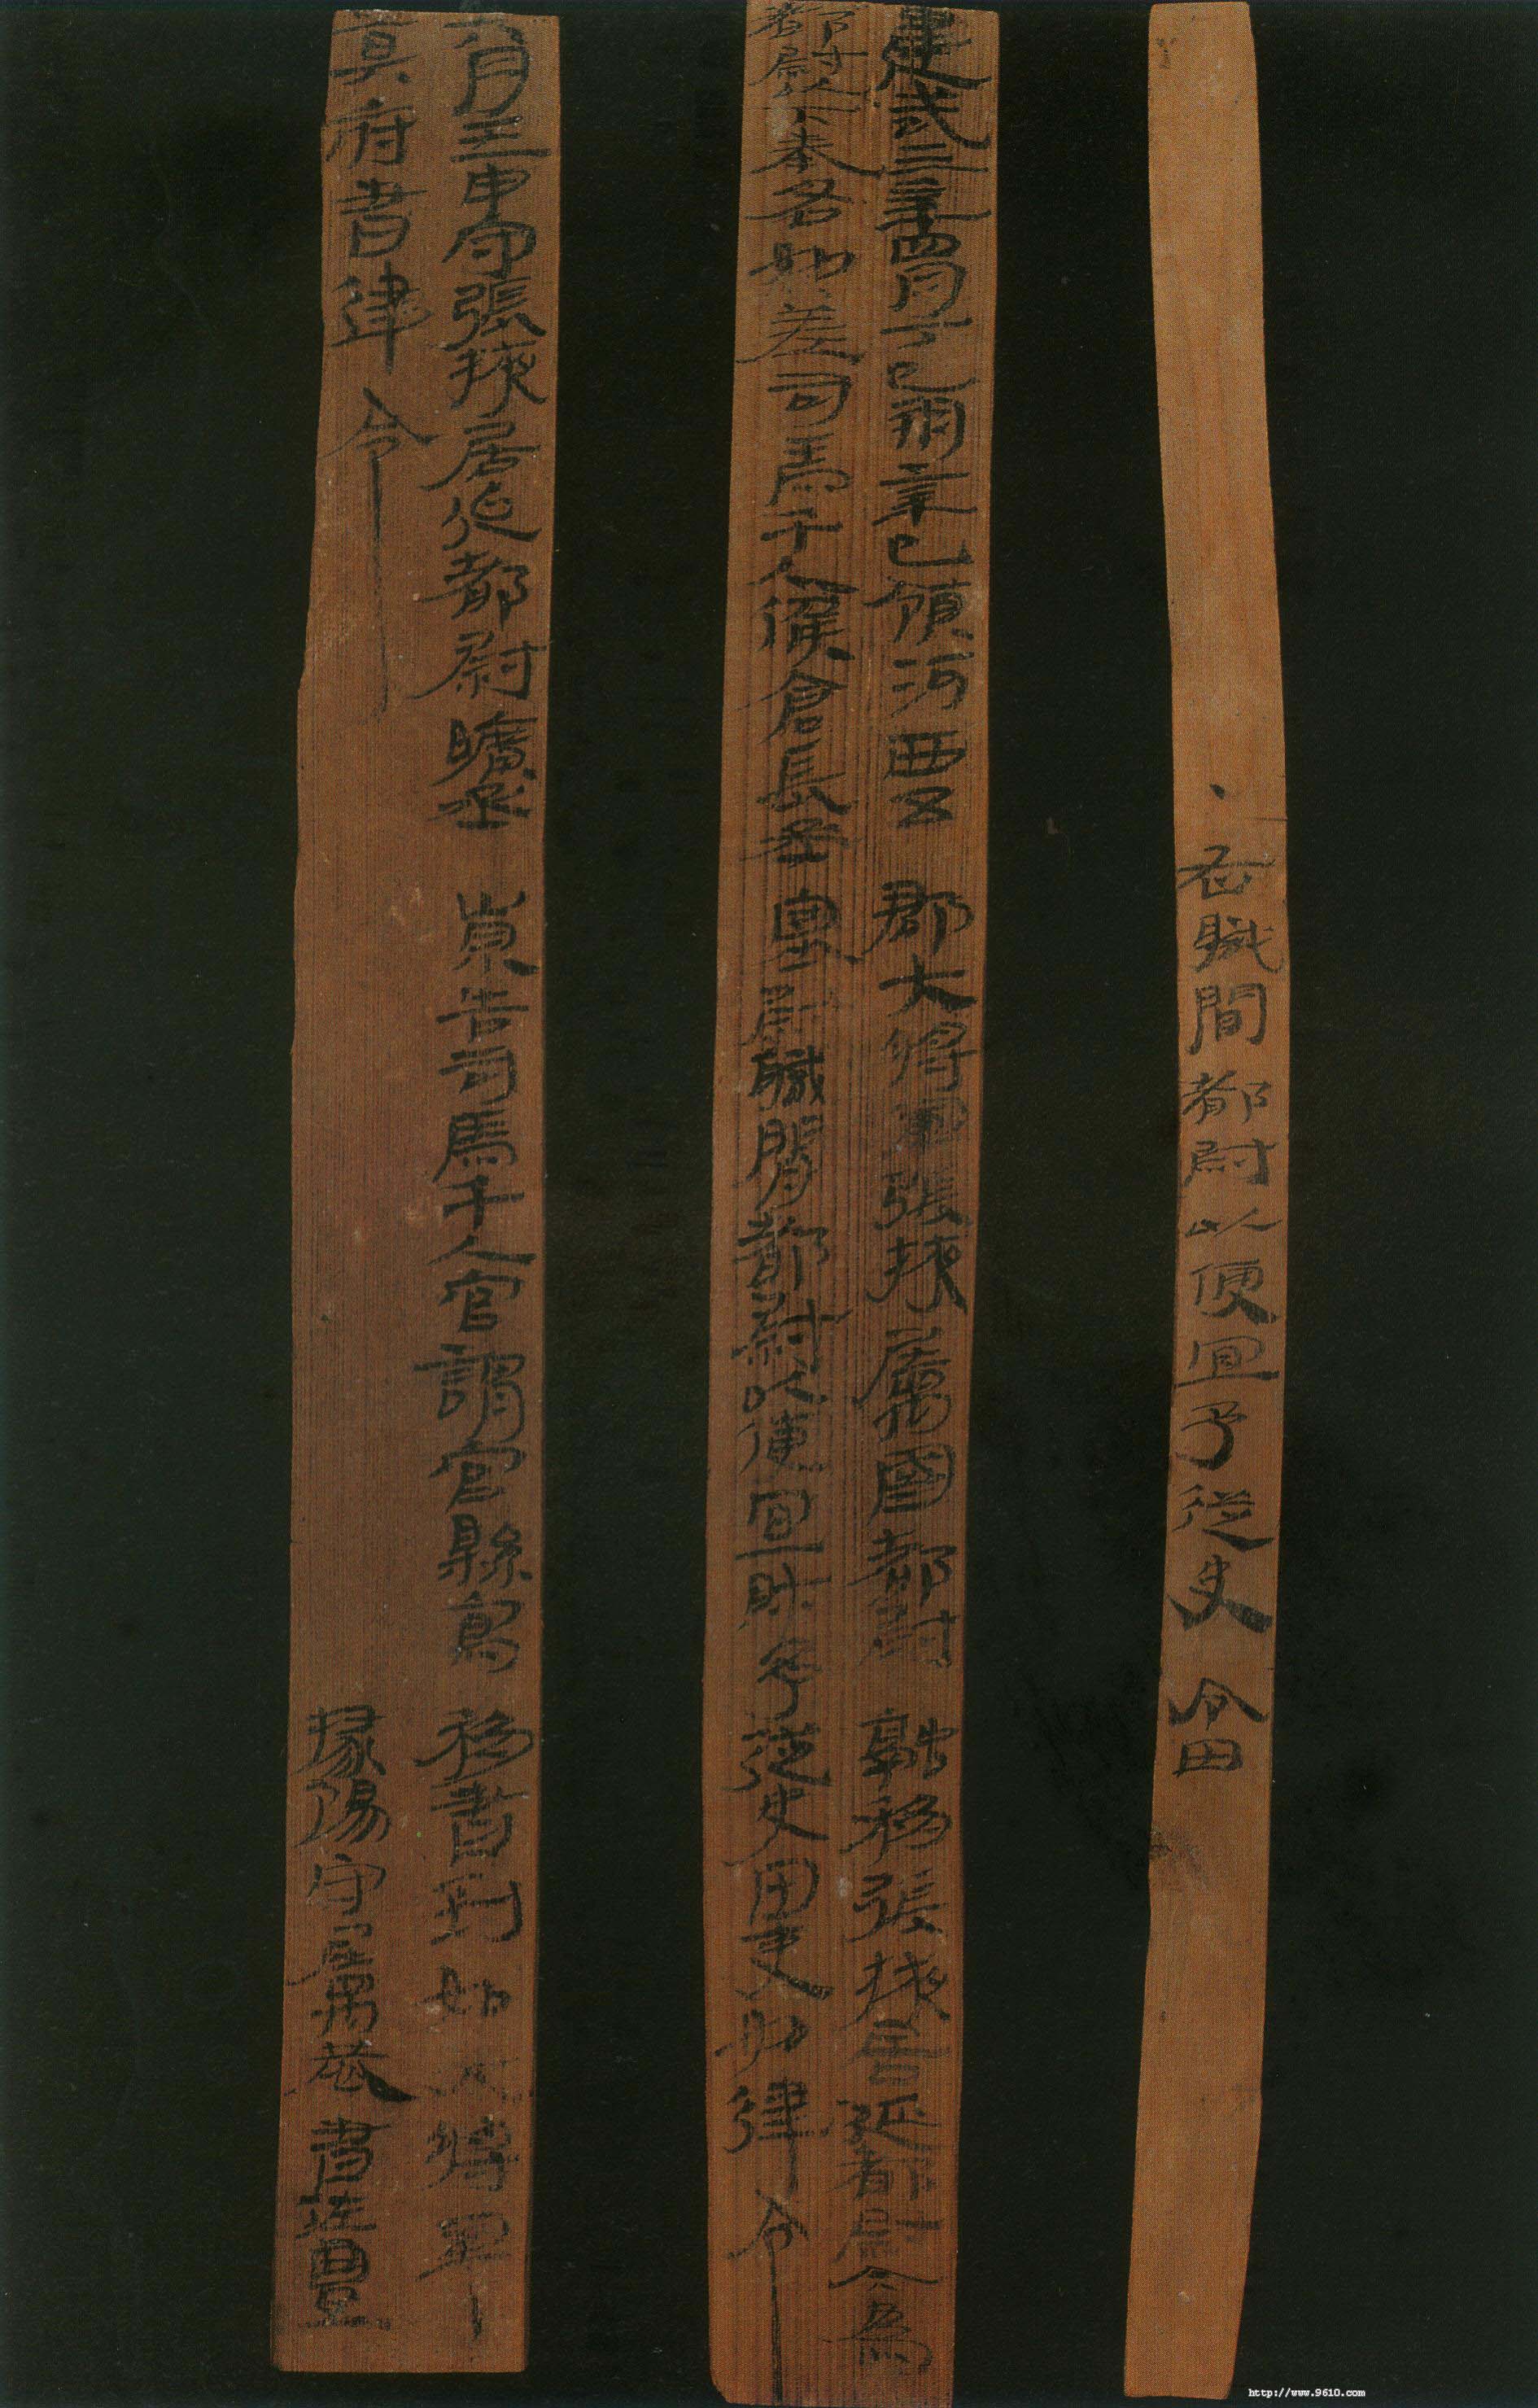 ·右職間都尉以便宜予從史令田
建武三年四月丁巳朔辛巳領河西五郡大將軍張掖屬國都尉融移張掖居延都尉今為
都尉以下奉各如差司馬千人候倉長丞塞尉職閒都尉以便宜財予從史田吏如律令
六月壬申守張掖居延都尉曠丞崇告司馬千人官謂官縣寫移書到如大將軍
莫府書律令 掾陽守屬恭書佐豐
http://www.9610.com